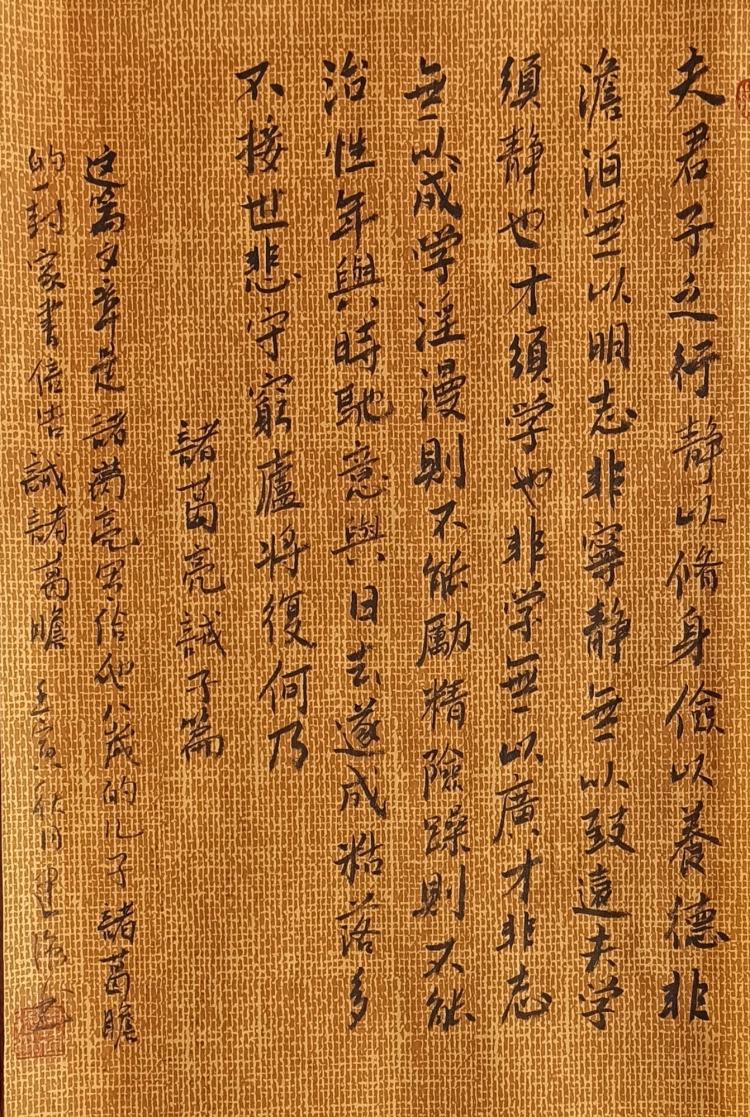 夫君子之行靜以脩身儉以養德非
澹泊無以明志非寧靜無以致遠夫学
須靜也才須学也非学無以廣才非志
無以成学淫漫則不能勵精險躁則不能
治性年與時馳意與日去遂成枯落多
不接世悲守窮廬將復何乃
諸葛亮誡子篇
这篇文章是諸葛亮写给他八歲的儿子諸葛瞻
的一封家書信告誡諸葛瞻 壬寅秋月建